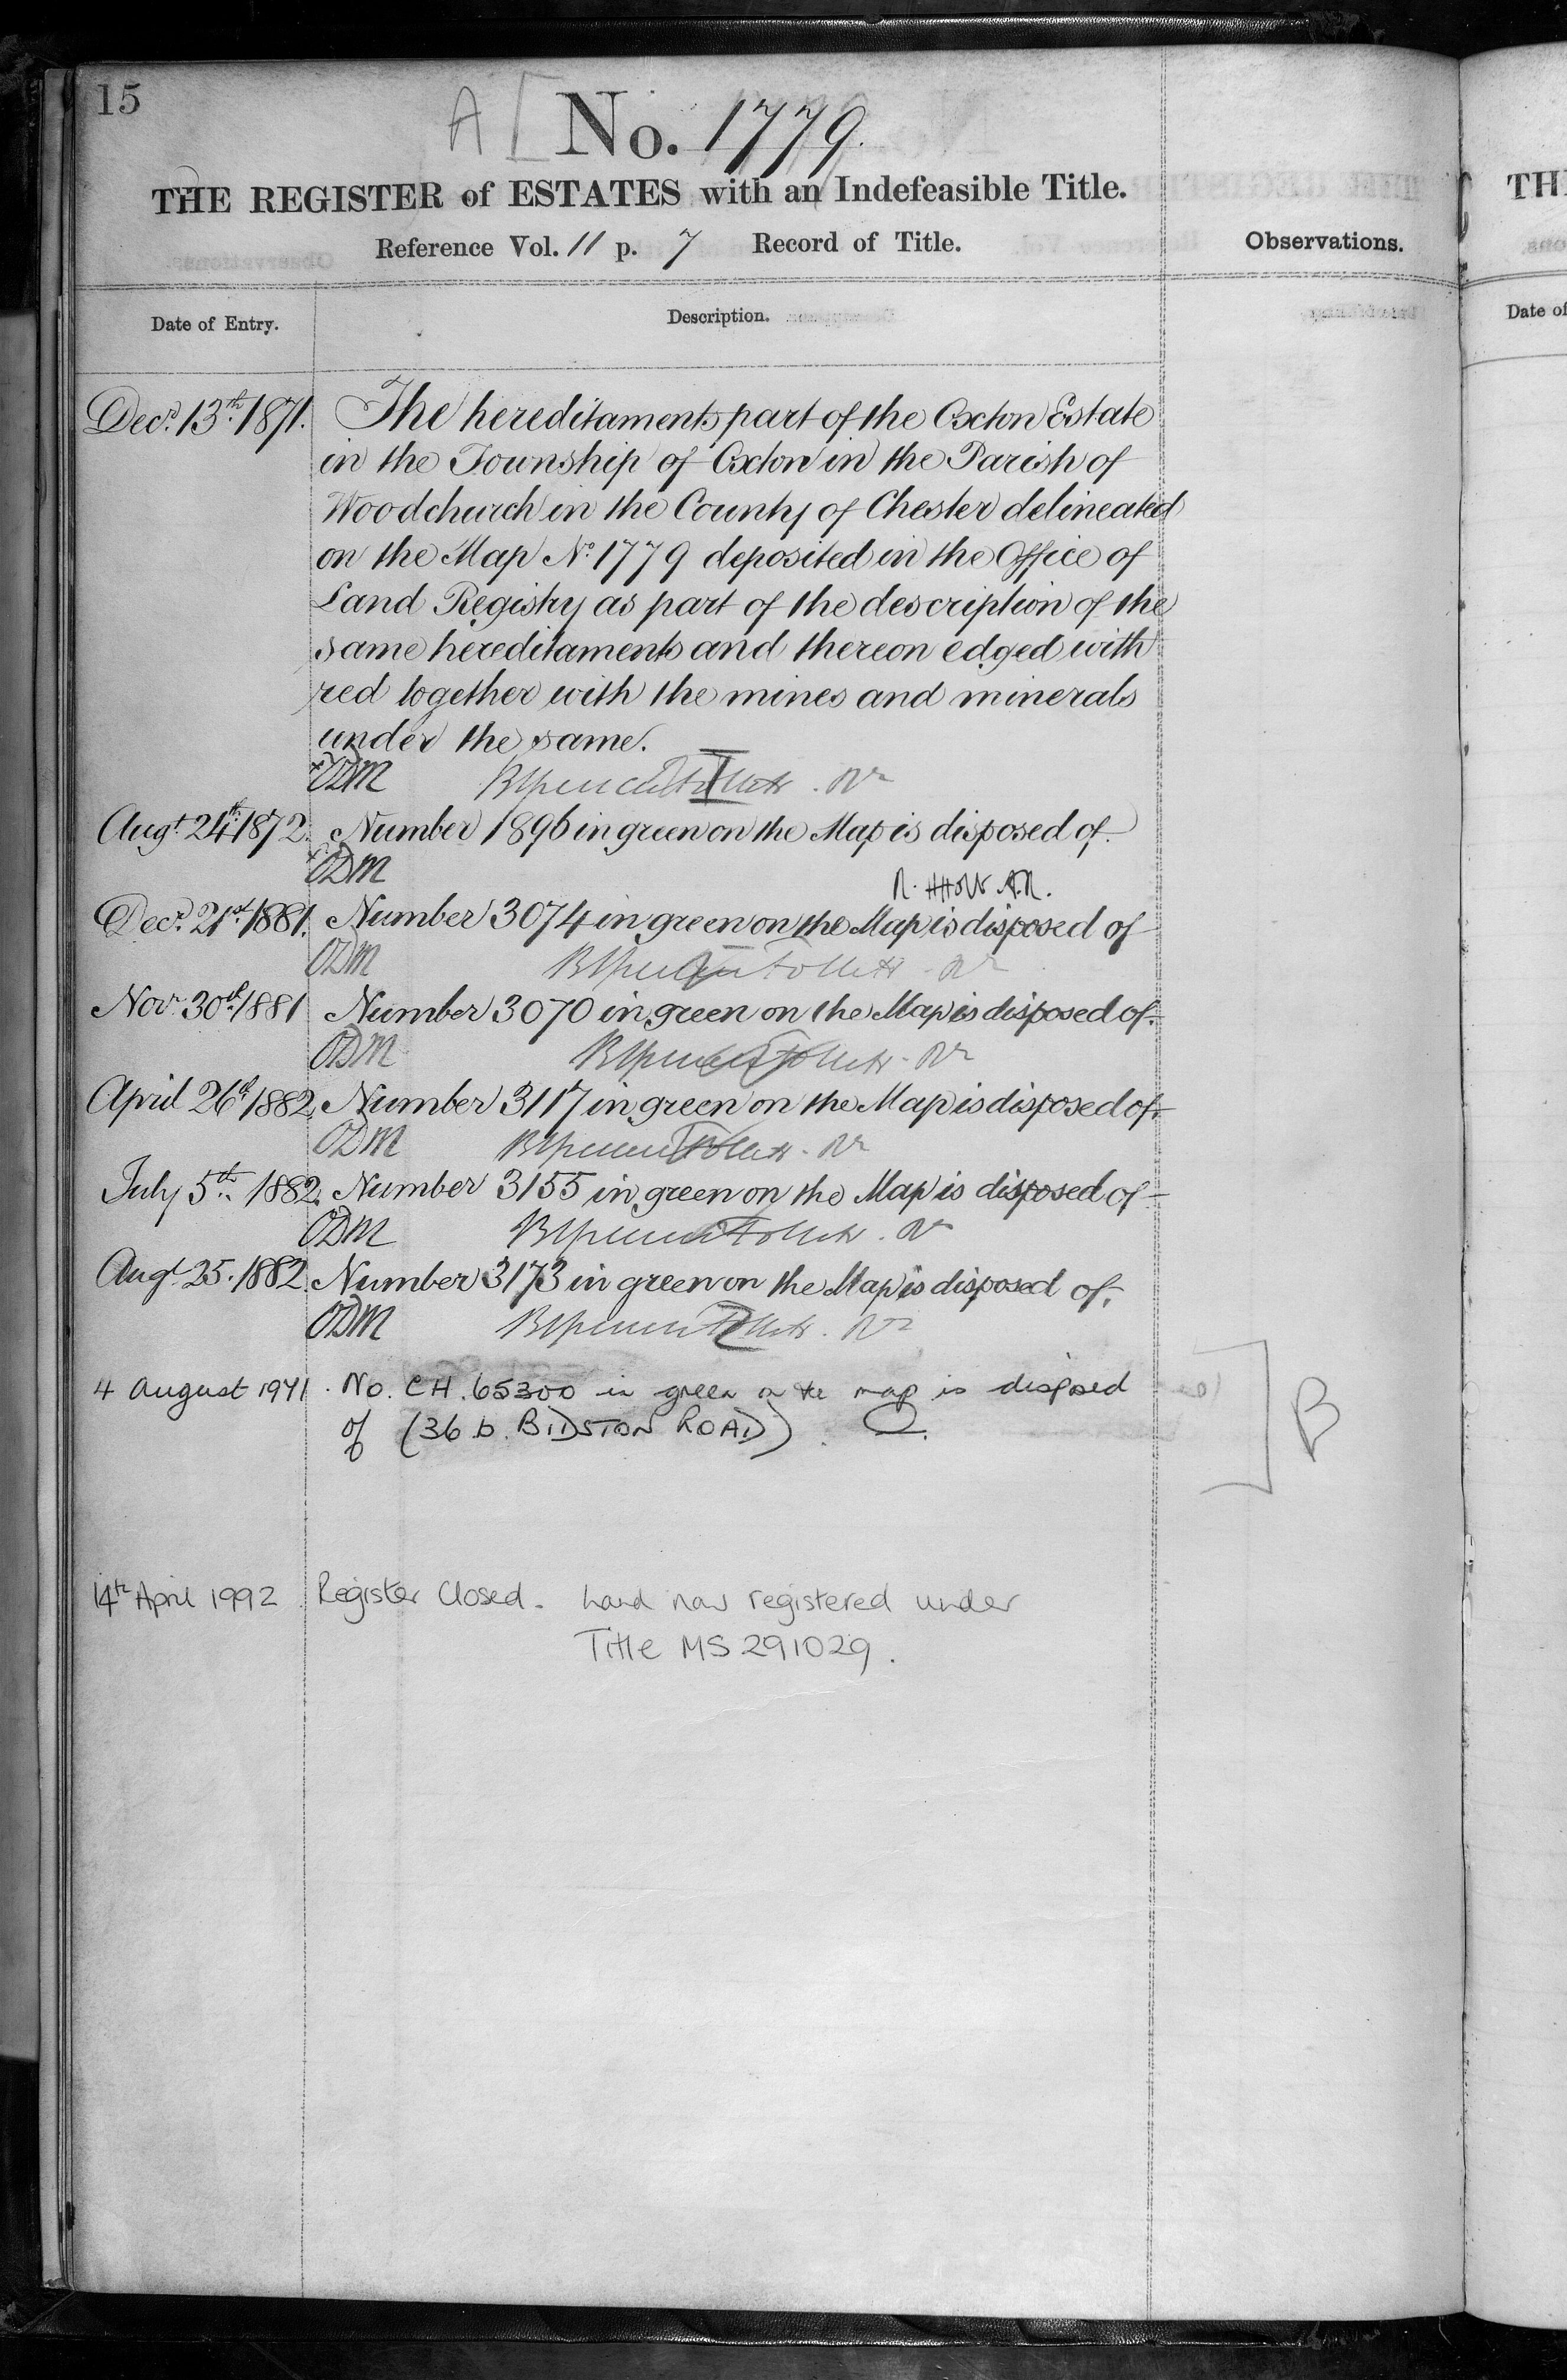 15
A [ No. 1779.
THE REGISTER of ESTATES with an Indefeasible Title.
Reference Vol. 11 p. 7 Record of Title.
Observations.
Date of Entry.
Description.
Decr. 13th. 1871. The hereditaments part of the Oxton Estate
in the Township of Oxton in the Parish of
Woodchurch in the County of Chester delineated
on the Map No. 1779 deposited in the Office of
Land Registry as part of the description of the
same hereditaments and thereon edged with
red together with the mines and minerals
under the same.
ODM
Augt. 24th. 1872. Number 1896 in green on the Map is disposed of.
ODM
Decr. 21st. 1881. Number 3074 in green on the Map is disposed of
ODM
Novr. 30th. 1881 Number 3070 in green on the Map is disposed of.
ODM
April 26th 1882. Number 3117 in green on the Map is disposed of.
ODM
July 5th. 1882. Number 3155 in green on the Map is disposed of
ODM
Augt. 25. 1882. Number 3173 in green on the Map is disposed of.
ODM
4 August 1971. No. CH. 65300 in green on the map is disposed
of (36 b. BIDSTON ROAD).
] B
14th April 1992 Register Closed. Land now registered under
Title MS 291029.
TH
Date of